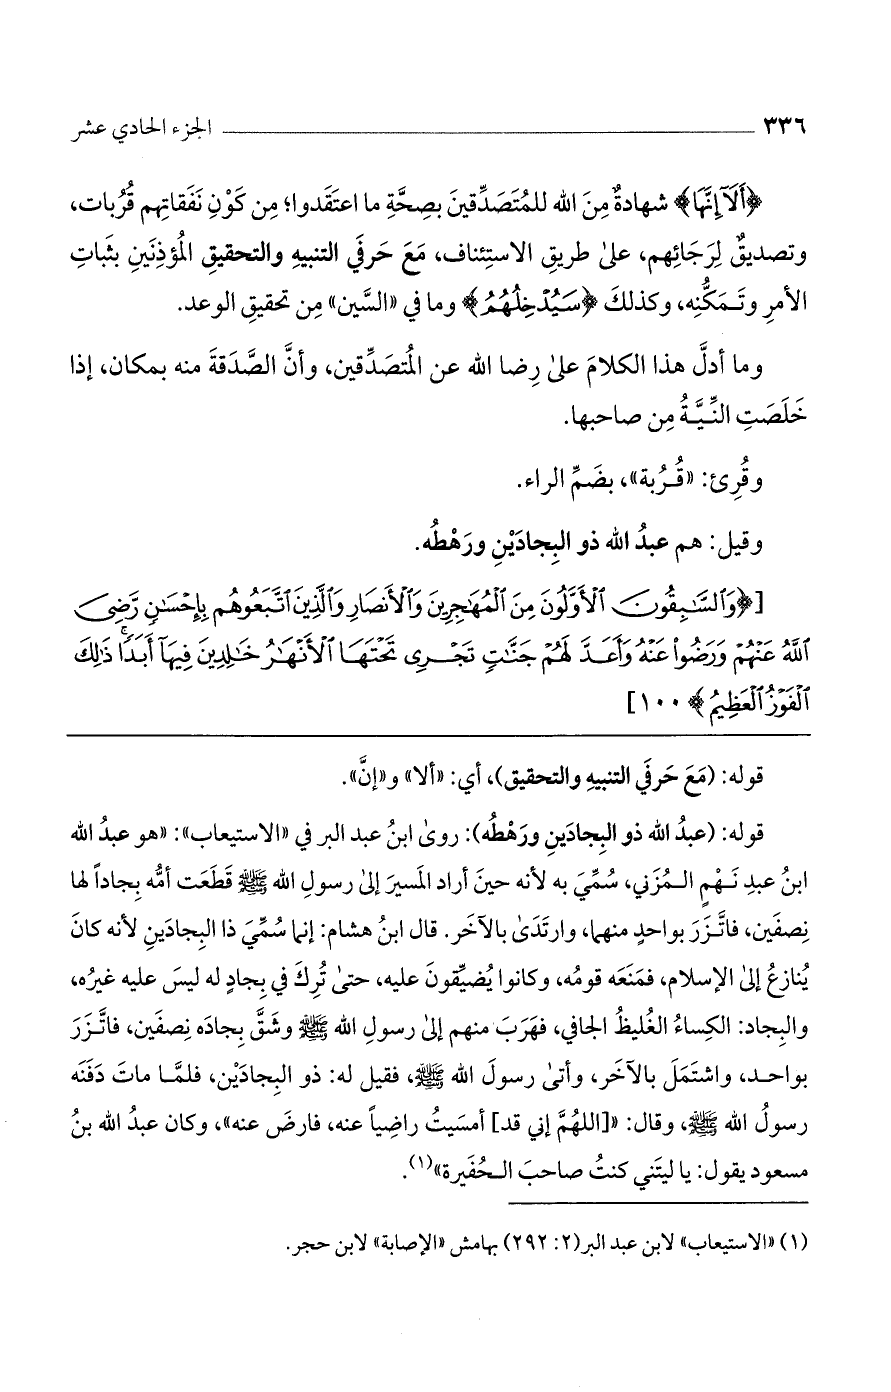 ٣٣٦ ــــــــــــــــــــ الجزء الحادي عشر
﴿أَلَآ إِنَّهَا﴾ شهادةٌ مِنَ الله للمُتَصَدِّقينَ بِصحَّةِ ما اعتَقَدوا؛ مِن كَوْنِ نَفَقاتِهم قُرُبات،
وتصديقٌ لِرَجَائِهم، علىٰ طريقِ الاستِئناف، مَعَ حَرفَيِ التنبيهِ والتحقيقِ الُمؤذِنَينِ بثَباتِ
الأمرِ وتَـمَكُّنِه، وكذلكَ ﴿سَيُدْخِلُهُمُ﴾ وما في «السَّين» مِن تحقيقِ الوعد.
وما أدلَّ هذا الكلامَ علىٰ رِضا الله عن الُمتَصدِّقين، وأنَّ الصَّدَقةَ منه بمكان، إذا
خَلَصَتِ النِّـيَّـةُ مِن صاحبها.
وقُرِئ: «قُـرُبة»، بضَمِّ الراء.
وقيل: هم عبدُ الله ذو البِجادَيْنِ ورَهْطُه.
[﴿وَٱلسَّٰبِقُونَ ٱلْأَوَّلُونَ مِنَ ٱلْمُهَٰجِرِينَ وَٱلْأَنصَارِ وَٱلَّذِينَ ٱتَّبَعُوهُم بِإِحْسَٰنٍ رَّضِىَ
ٱللَّهُ عَنْهُمْ وَرَضُوا۟ عَنْهُ وَأَعَدَّ لَهُمْ جَنَّٰتٍ تَجْرِى تَحْتَهَا ٱلْأَنْهَٰرُ خَٰلِدِينَ فِيهَآ أَبَدًا ۚ ذَٰلِكَ
ٱلْفَوْزُ ٱلْعَظِيمُ﴾ ١٠٠]
قوله: (مَعَ حَرفَيِ التنبيهِ والتحقيق)، أي: «ألا» و«إنَّ».
قوله: (عبدُ الله ذو البِجادَينِ ورَهْطُه): روىٰ ابنُ عبد البر في «الاستيعاب»: «هو عبدُ الله
ابنُ عبدِ نَـهْمٍ الـمُزَني، سُمِّيَ به لأنه حينَ أراد الَمسيرَ إلىٰ رسولِ الله ﷺ قَطَعَت أمُّه بِجاداً لها
نِصفَين، فاتَّـزَرَ بواحدٍ منهما، وارتَدَىٰ بالآخَر. قال ابنُ هشام: إنما سُمِّيَ ذا البِجادَينِ لأنه كانَ
يُنازعُ إلىٰ الإسلام، فمَنَعَه قومُه، وكانوا يُضيِّقونَ عليه، حتىٰ تُرِكَ في بِجادٍ له ليسَ عليه غيرُه،
والبِجاد: الكِساءُ الغُليظُ الجافي، فهَرَبَ منهم إلىٰ رسولِ الله ﷺ وشَقَّ بِجادَه نِصفَين، فاتَّـزَرَ
بواحـد، واشتَمَلَ بالآخَر، وأتىٰ رسولَ الله ﷺ، فقيل له: ذو البِجادَيْن، فلمَّـا ماتَ دَفَنَه
رسولُ الله ﷺ، وقال: «[اللهُمَّ إني قد] أمسَيتُ راضِياً عنه، فارضَ عنه»، وكان عبدُ الله بنُ
مسعود يقول: يا ليتَني كنتُ صاحبَ الـحُفَيرة»(١).
(١) «الاستيعاب» لابن عبد البر (٢: ٢٩٢) بهامش «الإصابة» لابن حجر.